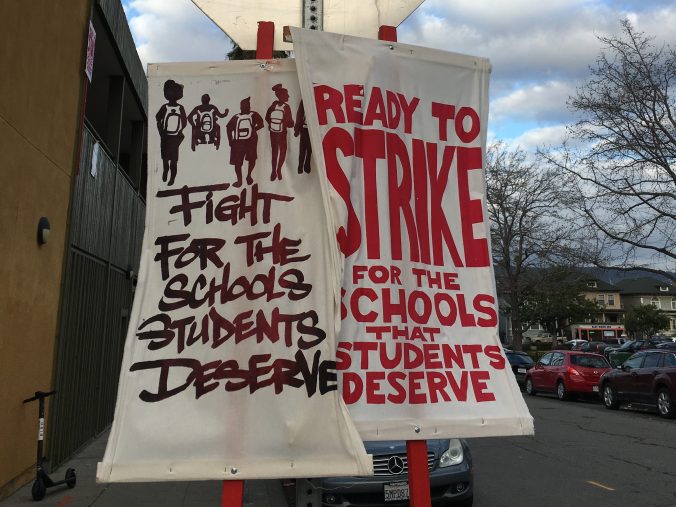 FIGHT
FOR THE
SCHOOLS
STUDENTS
DESERVE
READY TO
STRIKE
FOR THE
SCHOOLS
THAT
STUDENTS
DESERVE